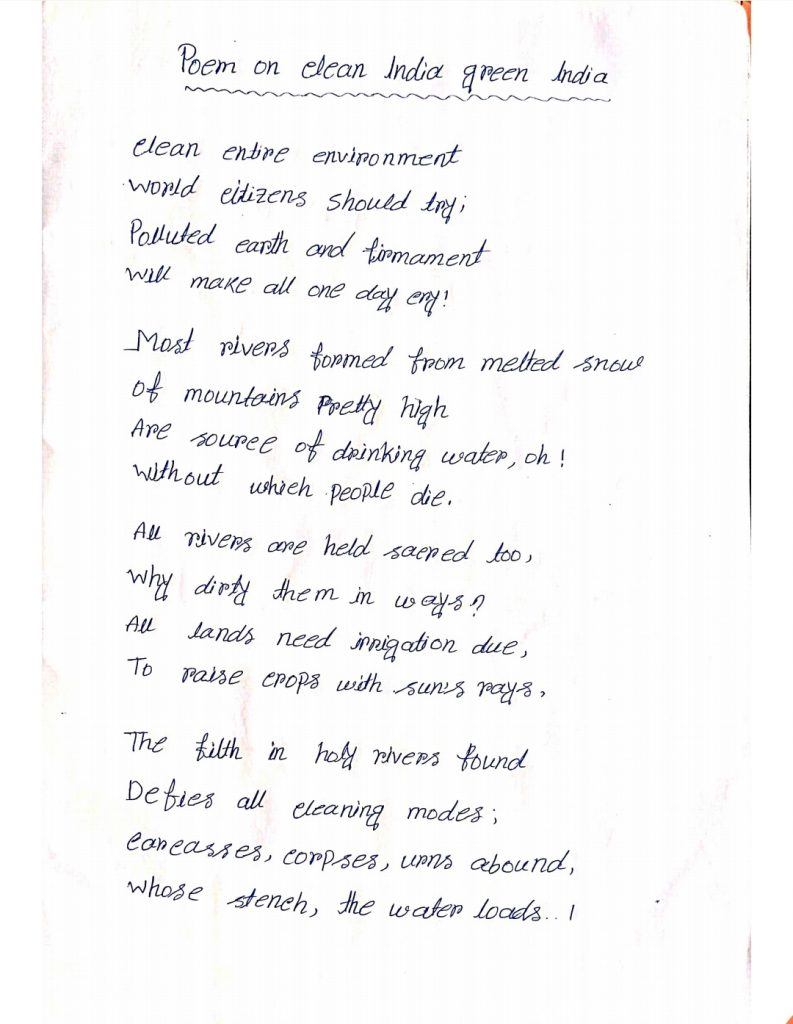 Poem on clean India green India
clean entire environment
World citizens should try;
Polluted earth and firmament
Will make all one day cry!
Most rivers formed from melted snow
Of mountains Pretty high
Are source of drinking water, oh!
Without which people die.
All rivers are held sacred too,
Why dirty them in ways?
All lands need irrigation due,
To raise crops with sun's rays,
The filth in holy rivers found
Defies all cleaning modes;
carcasses, corpses, urns abound,
Whose stench, the water loads..!